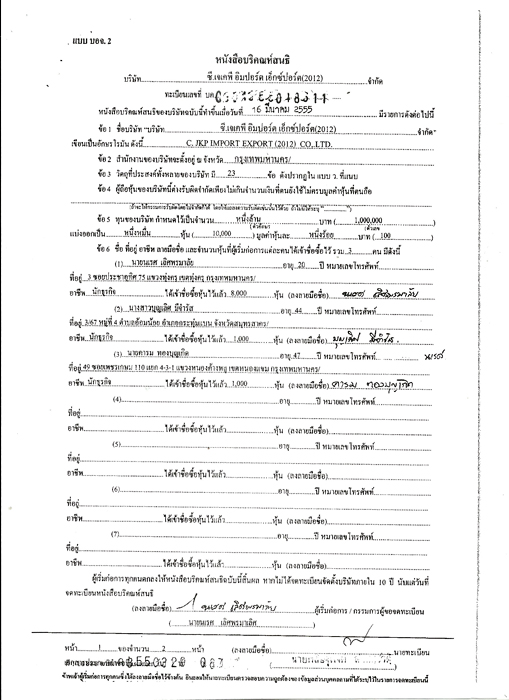 แบบ บอจ. 2
หนังสือบริคณห์สนธิ
บริษัท ซี.เจเคพี อิมปอร์ต เอ็กซ์ปอร์ต(2012) จำกัด
ทะเบียนเลขที่ บค.
หนังสือบริคณห์สนธิของบริษัทฉบับนี้ทำขึ้นเมื่อวันที่ 16 มีนาคม 2555 มีรายการดังต่อไปนี้
ข้อ 1 ชื่อบริษัท "บริษัท ซี.เจเคพี อิมปอร์ต เอ็กซ์ปอร์ต(2012) จำกัด"
เขียนเป็นอักษรโรมัน ดังนี้ C. JKP IMPORT EXPORT (2012) CO.,LTD.
ข้อ 2 สำนักงานของบริษัทจะตั้งอยู่ ณ จังหวัด กรุงเทพมหานคร/
ข้อ 3 วัตถุที่ประสงค์ทั้งหลายของบริษัท มี 23 ข้อ ดังปรากฏใน แบบ ว. ที่แนบ
ข้อ 4 ผู้ถือหุ้นของบริษัทนี้ต่างรับผิดจำกัดเพียงไม่เกินจำนวนเงินที่ตนยังใช้ไม่ครบมูลค่าหุ้นที่ตนถือ
ข้อ 5 ทุนของบริษัท กำหนดไว้เป็นจำนวน หนึ่งล้าน บาท ( 1,000,000 )
(ตัวอักษร) (ตัวเลข)
แบ่งออกเป็น หนึ่งหมื่น หุ้น ( 10,000 ) มูลค่าหุ้นละ หนึ่งร้อย บาท ( 100 )
ข้อ 6 ชื่อ ที่อยู่ อาชีพ ลายมือชื่อ และจำนวนหุ้นที่ผู้เริ่มก่อการแต่ละคนได้เข้าชื่อซื้อไว้ รวม 3 คน มีดังนี้
(1) นายนเรศ เลิศพรมาลิศ อายุ 20 ปี หมายเลขโทรศัพท์
ที่อยู่ 3 ซอยประชาอุทิศ 75 แขวงทุ่งครุ เขตทุ่งครุ กรุงเทพมหานคร/
อาชีพ นักธุรกิจ ได้เข้าชื่อซื้อหุ้นไว้แล้ว 8,000 หุ้น (ลงลายมือชื่อ)
(2) นางสาวบุญเลิศ มีจำรัส อายุ 44 ปี หมายเลขโทรศัพท์
ที่อยู่ 3/67 หมู่ที่ 4 ตำบลอ้อมน้อย อำเภอกระทุ่มแบน จังหวัดสมุทรสาคร/
อาชีพ นักธุรกิจ ได้เข้าชื่อซื้อหุ้นไว้แล้ว 1,000 หุ้น (ลงลายมือชื่อ) บุญเลิศ มีจำรัส
(3) นายคารม ทองบุญเกิด อายุ 47 ปี หมายเลขโทรศัพท์
ที่อยู่ 49 ซอยเพชรเกษม 110 แยก 4-3-1 แขวงหนองค้างพลู เขตหนองแขม กรุงเทพมหานคร/
อาชีพ นักธุรกิจ ได้เข้าชื่อซื้อหุ้นไว้แล้ว 1,000 หุ้น (ลงลายมือชื่อ) คารม ทองบุญเกิด
(4) อายุ ปี หมายเลขโทรศัพท์
ที่อยู่
อาชีพ ได้เข้าชื่อซื้อหุ้นไว้แล้ว หุ้น (ลงลายมือชื่อ)
(5) อายุ ปี หมายเลขโทรศัพท์
ที่อยู่
อาชีพ ได้เข้าชื่อซื้อหุ้นไว้แล้ว หุ้น (ลงลายมือชื่อ)
(6) อายุ ปี หมายเลขโทรศัพท์
ที่อยู่
อาชีพ ได้เข้าชื่อซื้อหุ้นไว้แล้ว หุ้น (ลงลายมือชื่อ)
(7) อายุ ปี หมายเลขโทรศัพท์
ที่อยู่
อาชีพ ได้เข้าชื่อซื้อหุ้นไว้แล้ว หุ้น (ลงลายมือชื่อ)
ผู้เริ่มก่อการทุกคนตกลงให้หนังสือบริคณห์สนธิฉบับนี้สิ้นผล หากไม่ได้จดทะเบียนจัดตั้งบริษัทภายใน 10 ปี นับแต่วันที่
จดทะเบียนหนังสือบริคณห์สนธิ
(ลงลายมือชื่อ) ผู้เริ่มก่อการ / กรรมการผู้ขอจดทะเบียน
( นายนเรศ เลิศพรมาลิศ )
หน้า 1 ของจำนวน 2 หน้า (ลงลายมือชื่อ) นายทะเบียน